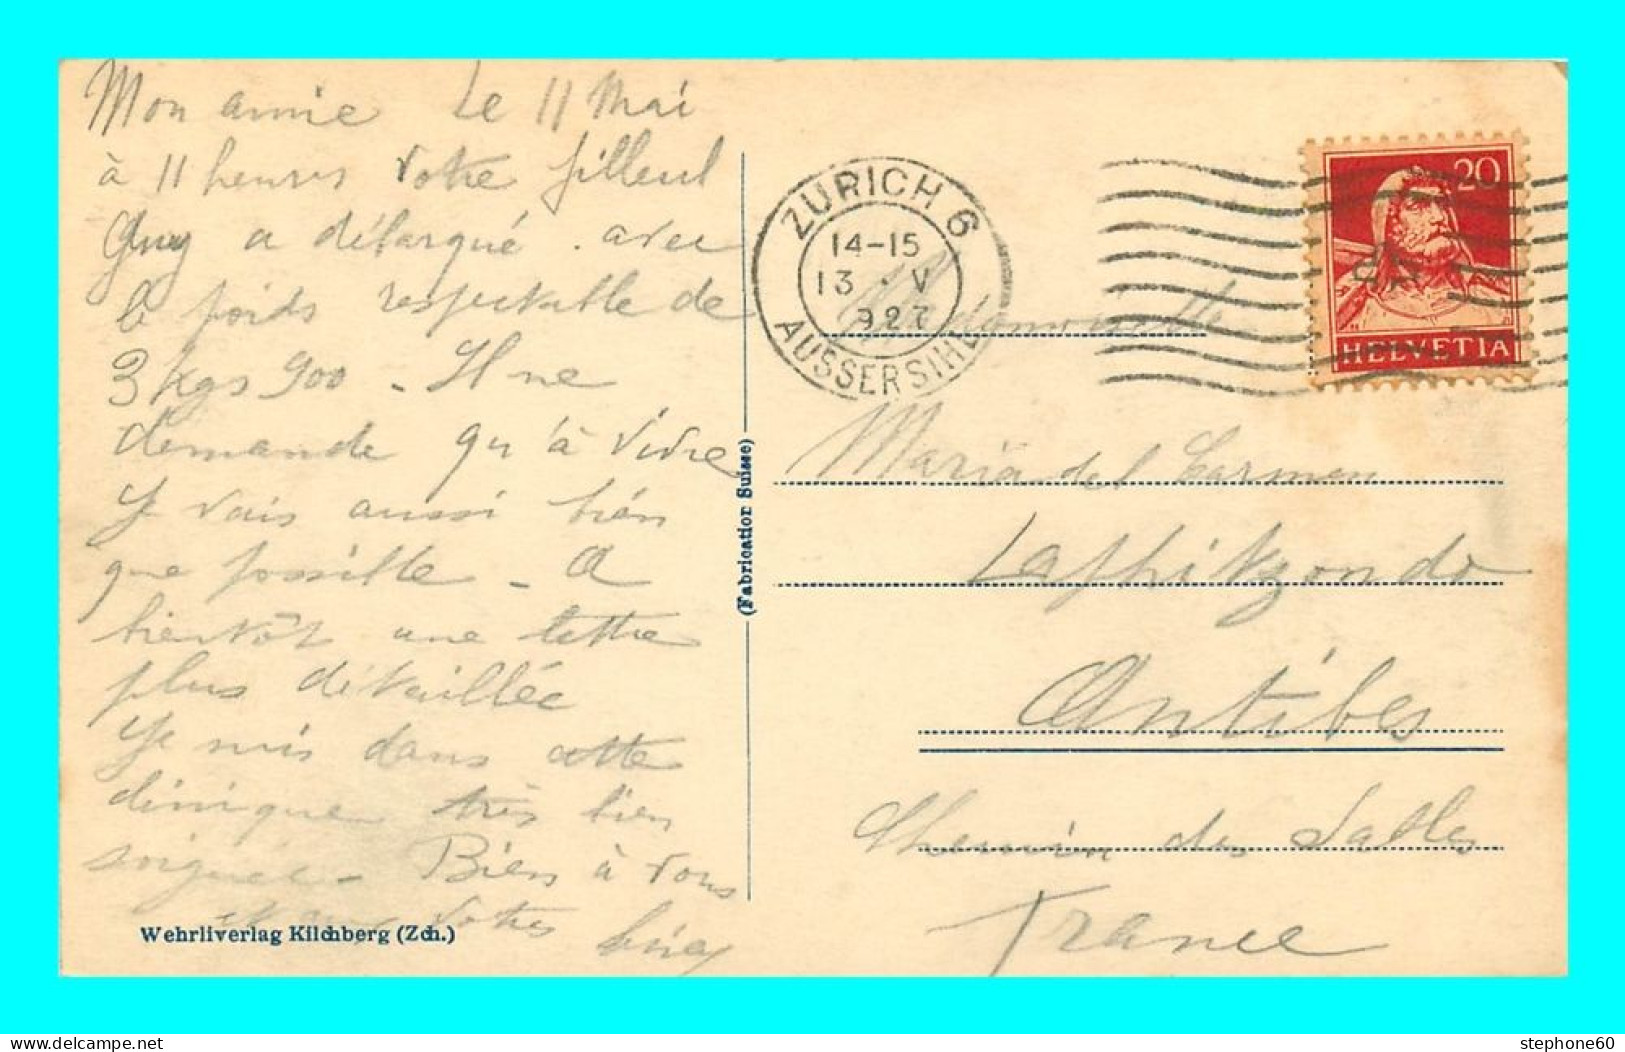 Mon amie Le 11 Mai
à 11 heures votre filleul
Guy a débarqué. avec
le poids respectable de
3 kgs 900 - Il ne
demande qu'à vivre
Je vais aussi bien
que possible - A
bientôt une lettre
plus détaillée
Je suis dans cette
clinique très bien
soignée - Bien à vous
votres
Wehrliverlag Kilchberg (Zch.)
(Fabrication Suisse)
ZÜRICH 6
14-15
13 · V
927
AUSSERSIHL
20
HELVETIA
Mademoiselle
Maria del Carmen
Laphitzondo
Antibes
Chemin des Sables
France
stephone60